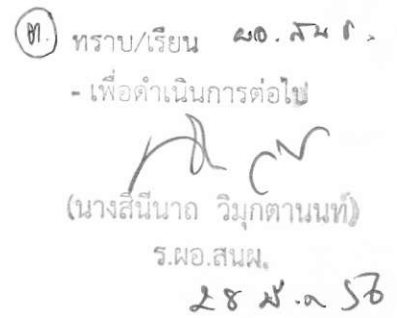 ต. ทราบ/เรียน ผอ. สน
- เพื่อดำเนินการต่อไป
(นางสินีนาถ วิมุกตานนท์)
ร.ผอ.สนผ.
28 มี.ค 56